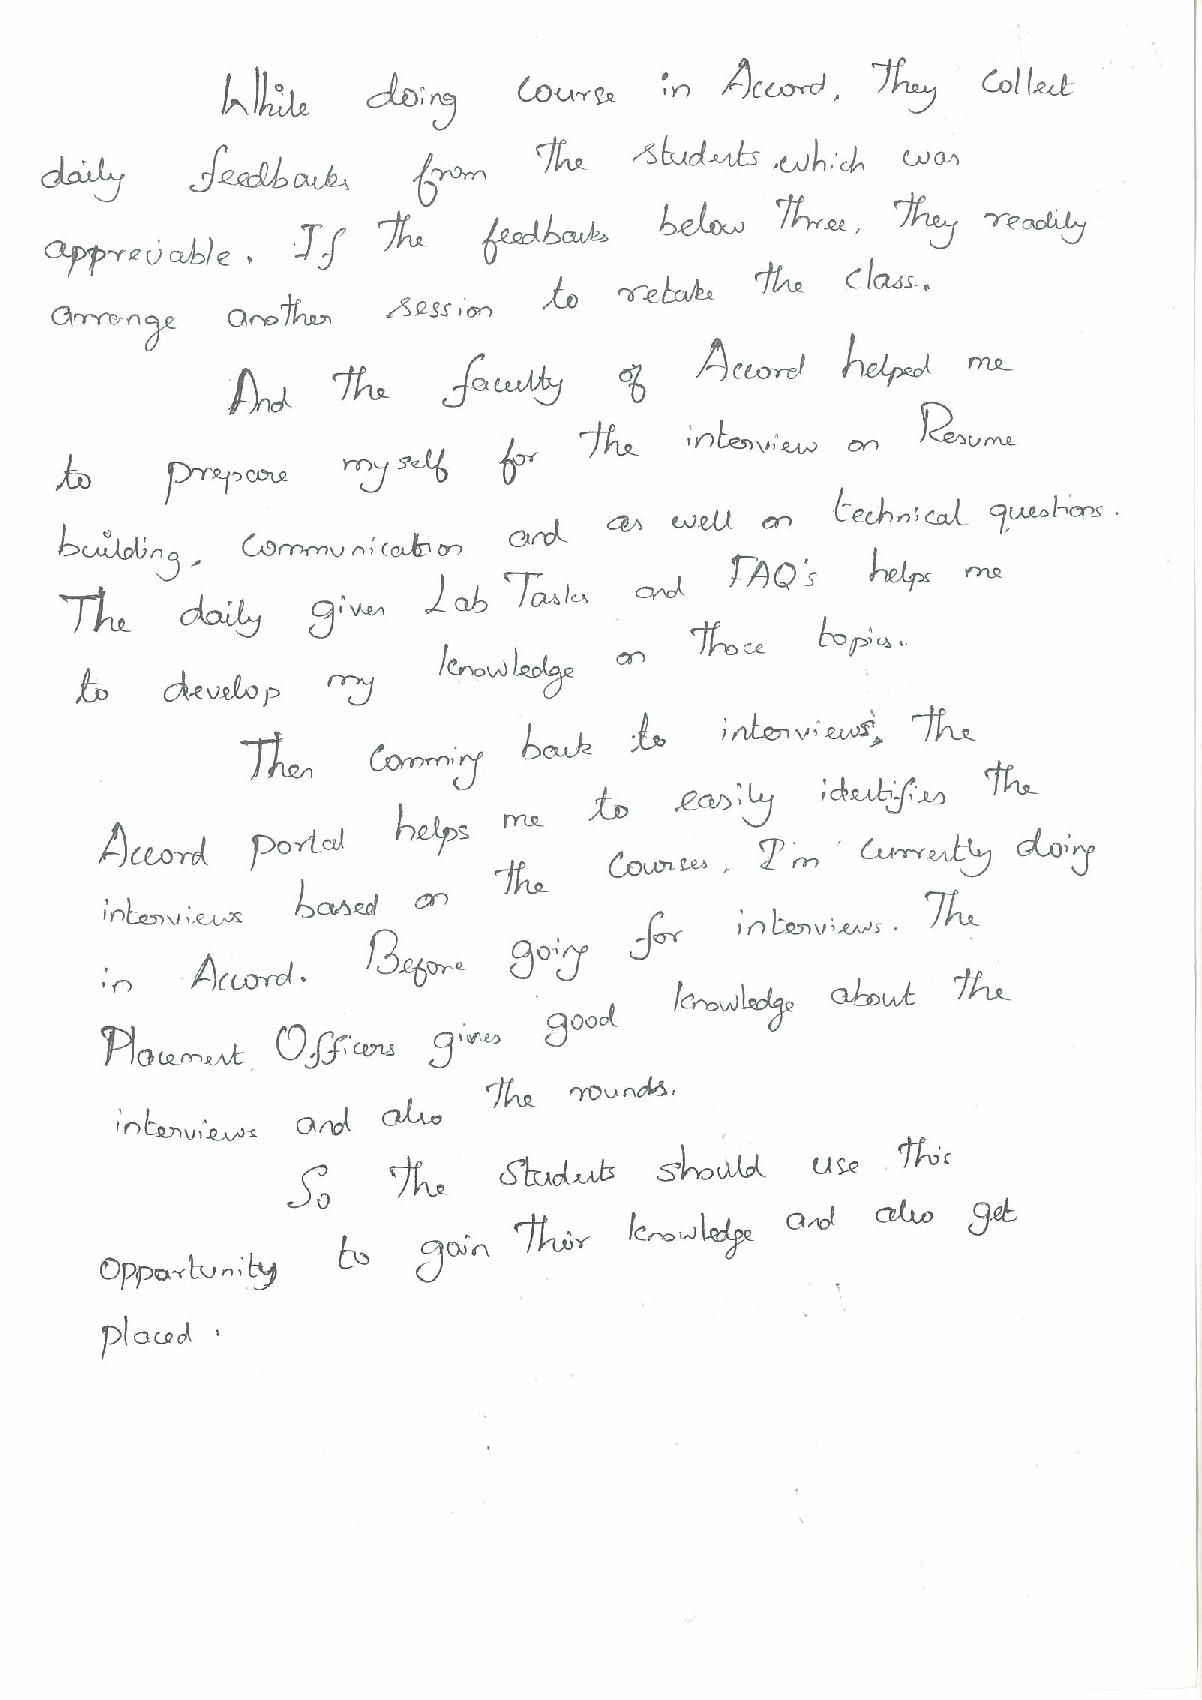 While doing course in Accord, They collect
daily feedbacks from the students, which was
appreciable. If the feedbacks below three, they readily
arrange another session to retake the class.
And the faculty of Accord helped me
to prepare myself for the interview on Resume
building, communication and as well on technical questions.
The daily given Lab Tasks and FAQ's helps me
to develop my knowledge on those topics.
Then comming back to interviews, the
Accord portal helps me to easily identifies the
interviews based on the courses. I'm currently doing
in Accord. Before going for interviews. The
Placement Officers gives good knowledge about the
interviews and also the rounds.
So the students should use this
opportunity to gain their knowledge and also get
placed.